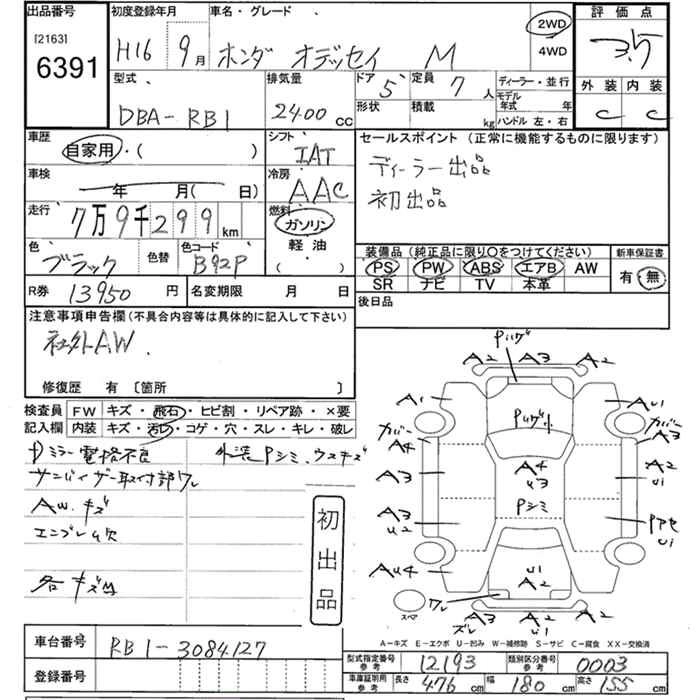 出品番号 初度登録年月 車名・グレード 評価点
[2163] 6391 H16 9月 ホンダ オデッセイ M 2WD 4WD 3.5
型式 排気量 ドア 5 定員 7人 ディーラー・並行 外装 内装
DBA-RB1 2400cc 形状 積載 kg モデル年式 年 ハンドル 左・右 C C
車歴 シフト セールスポイント (正常に機能するものに限ります)
自家用・( ) IAT ディーラー出品
車検 年 月( 日) 冷房 AAC 初出品
走行 7万9千299km 燃料 ガソリン
色 ブラック 色替 色コード B92P 軽油 ( ) 装備品 (純正品に限り○をつけてください) 新車保証書
PS PW ABS エアB AW 有・無
SR ナビ TV 本革
R券 13950円 名変期限 月 日 後日品
注意事項申告欄 (不具合内容等は具体的に記入して下さい)
社外AW.
修復歴 有 〔箇所 〕
検査員記入欄 FW キズ・飛石・ヒビ割・リペア跡・×要
内装 キズ・汚れ・コゲ・穴・スレ・キレ・破レ
ミラー電格不良 外装Pシミ、ウスキズ
サンバイザー取付部ワレ
AW.キズ
エンブレム欠
初出品
各キズ凹
A2 A3 A2
A1 AU1
カバー カバー
A4 A3
A3 A4 U3 A2 U1
A3 U2 Pシミ U1
AU4 U1 A2
ワレ
スペア ズレ A3 A2 U1 A2
A-キズ E-エクボ U-凹み W-補修跡 S-サビ C-腐食 XX-交換済
車台番号 RB1-3084127
型式指定番号 参考 12193 類別区分番号 参考 0003
登録番号 車庫証明用 参考 長さ 476cm 幅 180cm 高さ 155cm